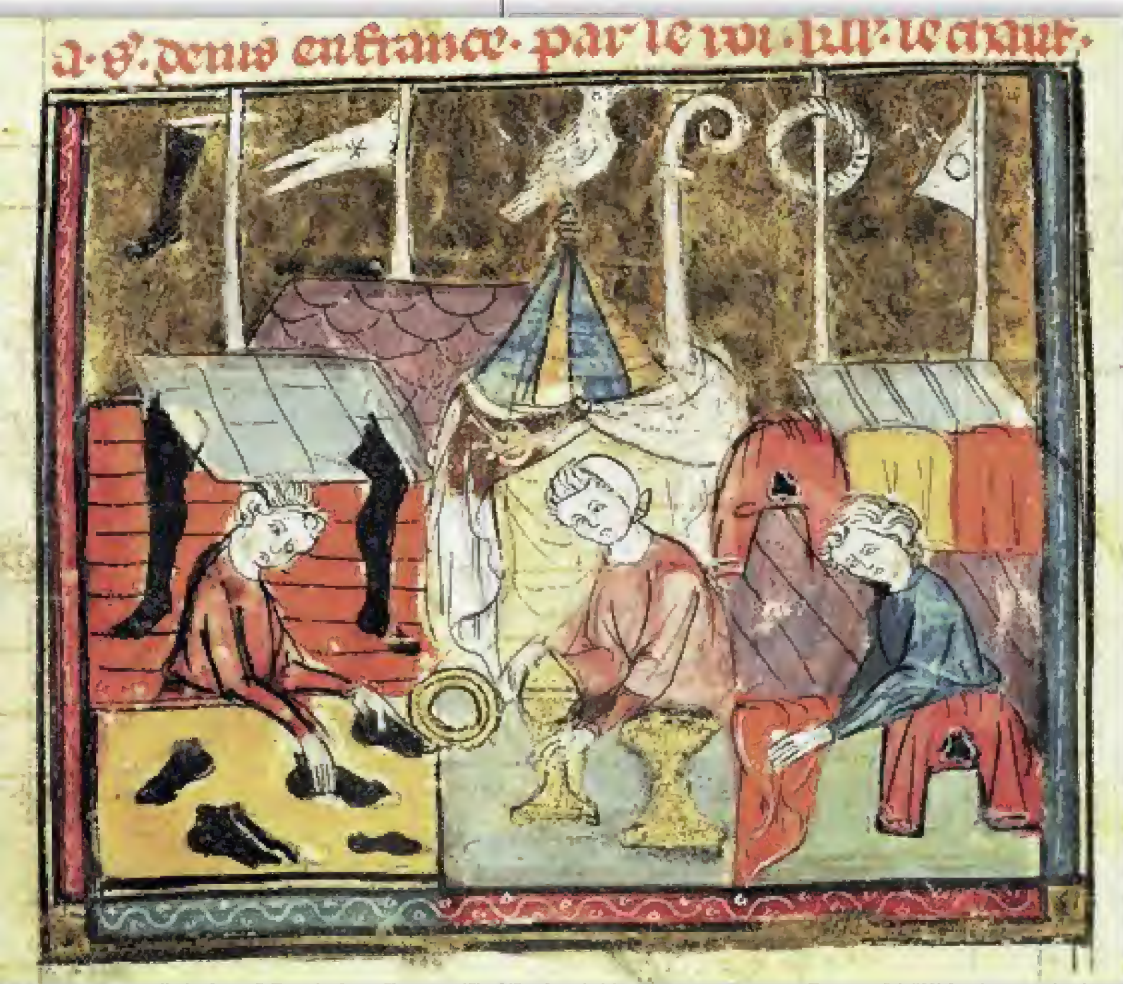 a·s'·denis en france· par le roi·kll'·le chauf·